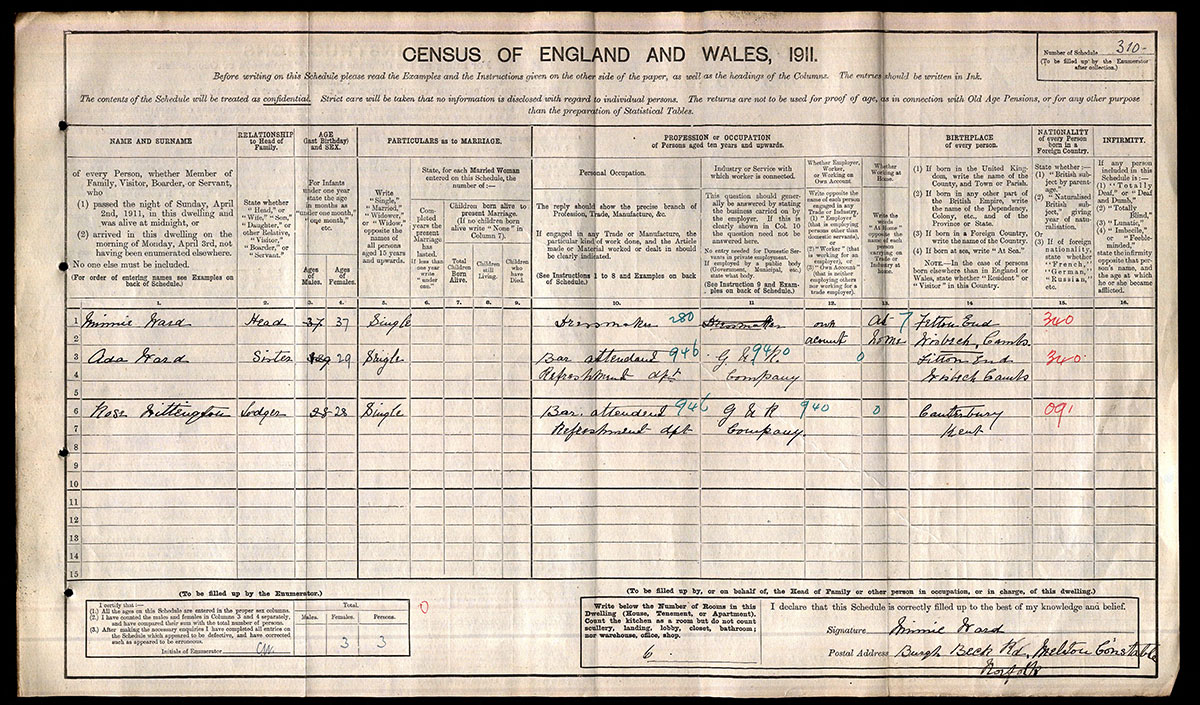 CENSUS OF ENGLAND AND WALES, 1911.
Number of Schedule 310
(To be filled up by the Enumerator
after collection.)
Before writing on this Schedule please read the Examples and the Instructions given on the other side of the paper, as well as the headings of the Columns. The entries should be written in Ink.
The contents of the Schedule will be treated as confidential. Strict care will be taken that no information is disclosed with regard to individual persons. The returns are not to be used for proof of age, as in connection with Old Age Pensions, or for any other purpose
than the preparation of Statistical Tables.
NAME AND SURNAME
of every Person, whether Member of
Family, Visitor, Boarder, or Servant,
who
(1) passed the night of Sunday, April
2nd, 1911, in this dwelling and
was alive at midnight, or
(2) arrived in this dwelling on the
morning of Monday, April 3rd, not
having been enumerated elsewhere.
No one else must be included.
(For order of entering names see Examples on
back of Schedule.)
RELATIONSHIP
to Head of
Family.
State whether
"Head," or
"Wife," "Son,"
"Daughter," or
other Relative,
"Visitor,"
"Boarder," or
"Servant."
AGE
(last Birthday)
and SEX.
For Infants
under one year
state the age
in months as
"under one month,"
"one month,"
etc.
Ages
of
Males.
Ages
of
Females.
PARTICULARS as to MARRIAGE.
Write
"Single,"
"Married,"
"Widower,"
or "Widow,"
opposite the
names of
all persons
aged 15 years
and upwards.
State, for each Married Woman
entered on this Schedule, the
number of:—
Completed
years the
present
Marriage
has
lasted.
If less than
one year
write
"under one."
Children born alive to
present Marriage.
(If no children born
alive write "None" in
Column 7).
Total
Children
Born
Alive.
Children
still
Living.
Children
who
have
Died.
PROFESSION or OCCUPATION
of Persons aged ten years and upwards.
Personal Occupation.
The reply should show the precise branch of
Profession, Trade, Manufacture, &c.
If engaged in any Trade or Manufacture, the
particular kind of work done, and the Article
made or Material worked or dealt in should
be clearly indicated.
(See Instructions 1 to 8 and Examples on back
of Schedule.)
Industry or Service with
which worker is connected.
This question should generally
be answered by stating
the business carried on by
the employer. If this is
clearly shown in Col. 10
the question need not be
answered here.
No entry needed for Domestic Servants
in private employment.
If employed by a public body
(Government, Municipal, etc.)
state what body.
(See Instruction 9 and Examples
on back of Schedule.)
Whether Employer,
Worker,
or Working on
Own Account.
Write opposite the
name of each person
engaged in any
Trade or Industry,
(1) "Employer"
(that is employing
persons other than
domestic servants),
or
(2) "Worker" (that
is working for an
employer), or
(3) "Own Account"
(that is neither
employing others
nor working for a
trade employer).
Whether
Working at
Home.
Write the
words
"At Home"
opposite the
name of each
person
carrying on
Trade or
Industry at
home.
BIRTHPLACE
of every person.
(1) If born in the United Kingdom,
write the name of the
County, and Town or Parish.
(2) If born in any other part of
the British Empire, write
the name of the Dependency,
Colony, etc., and of the
Province or State.
(3) If born in a Foreign Country,
write the name of the Country.
(4) If born at sea, write "At Sea."
NOTE.—In the case of persons
born elsewhere than in England or
Wales, state whether "Resident" or
"Visitor" in this Country.
NATIONALITY
of every Person
born in a
Foreign Country.
State whether:—
(1) "British subject
by parentage,"
(2) "Naturalised
British
subject," giving
year of naturalisation.
Or
(3) If of foreign
nationality,
state whether
"French,"
"German,"
"Russian,"
etc.
INFIRMITY.
If any person
included in this
Schedule is:—
(1) "Totally
Deaf," or "Deaf
and Dumb,"
(2) "Totally
Blind,"
(3) "Lunatic,"
(4) "Imbecile,"
or "Feeble-minded,"
state the infirmity
opposite that person's
name, and
the age at which
he or she became
afflicted.
1. 2. 3. 4. 5. 6. 7. 8. 9. 10. 11. 12. 13. 14 15. 16.
1 Minnie Ward Head 37 37 Single Dressmaker 280 Dressmaker own At 7 Fitton End 340
2 account home Wisbech, Cambs.
3 Ada Ward Sister 29 29 Single Bar attendant 946 G E R 940 0 Fitton End 340
4 Refreshment dpt Company Wisbech Cambs
5
6 Rose Wittington Lodger 28 28 Single Bar. attendent 946 G E R 940 0 Canterbury 091
7 Refreshment dpt Company. Kent
8
9
10
11
12
13
14
15
(To be filled up by the Enumerator.)
I certify that:—
(1.) All the ages on this Schedule are entered in the proper sex columns.
(2.) I have counted the males and females in Columns 3 and 4 separately,
and have compared their sum with the total number of persons.
(3.) After making the necessary enquiries I have completed all entries on
the Schedule which appeared to be defective, and have corrected
such as appeared to be erroneous.
Initials of Enumerator
Total.
Males. Females. Persons.
3 3
0
(To be filled up by, or on behalf of, the Head of Family or other person in occupation, or in charge, of this dwelling.)
Write below the Number of Rooms in this
Dwelling (House, Tenement, or Apartment).
Count the kitchen as a room but do not count
scullery, landing, lobby, closet, bathroom;
nor warehouse, office, shop.
6
I declare that this Schedule is correctly filled up to the best of my knowledge and belief.
Signature Minnie Ward
Postal Address Burgh Beck Rd, Melton Constable
Norfolk